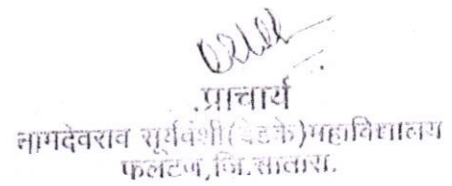 प्राचार्य
नामदेवराव सूर्यवंशी(बेडके)महाविद्यालय
फलटण,जि.सातारा.